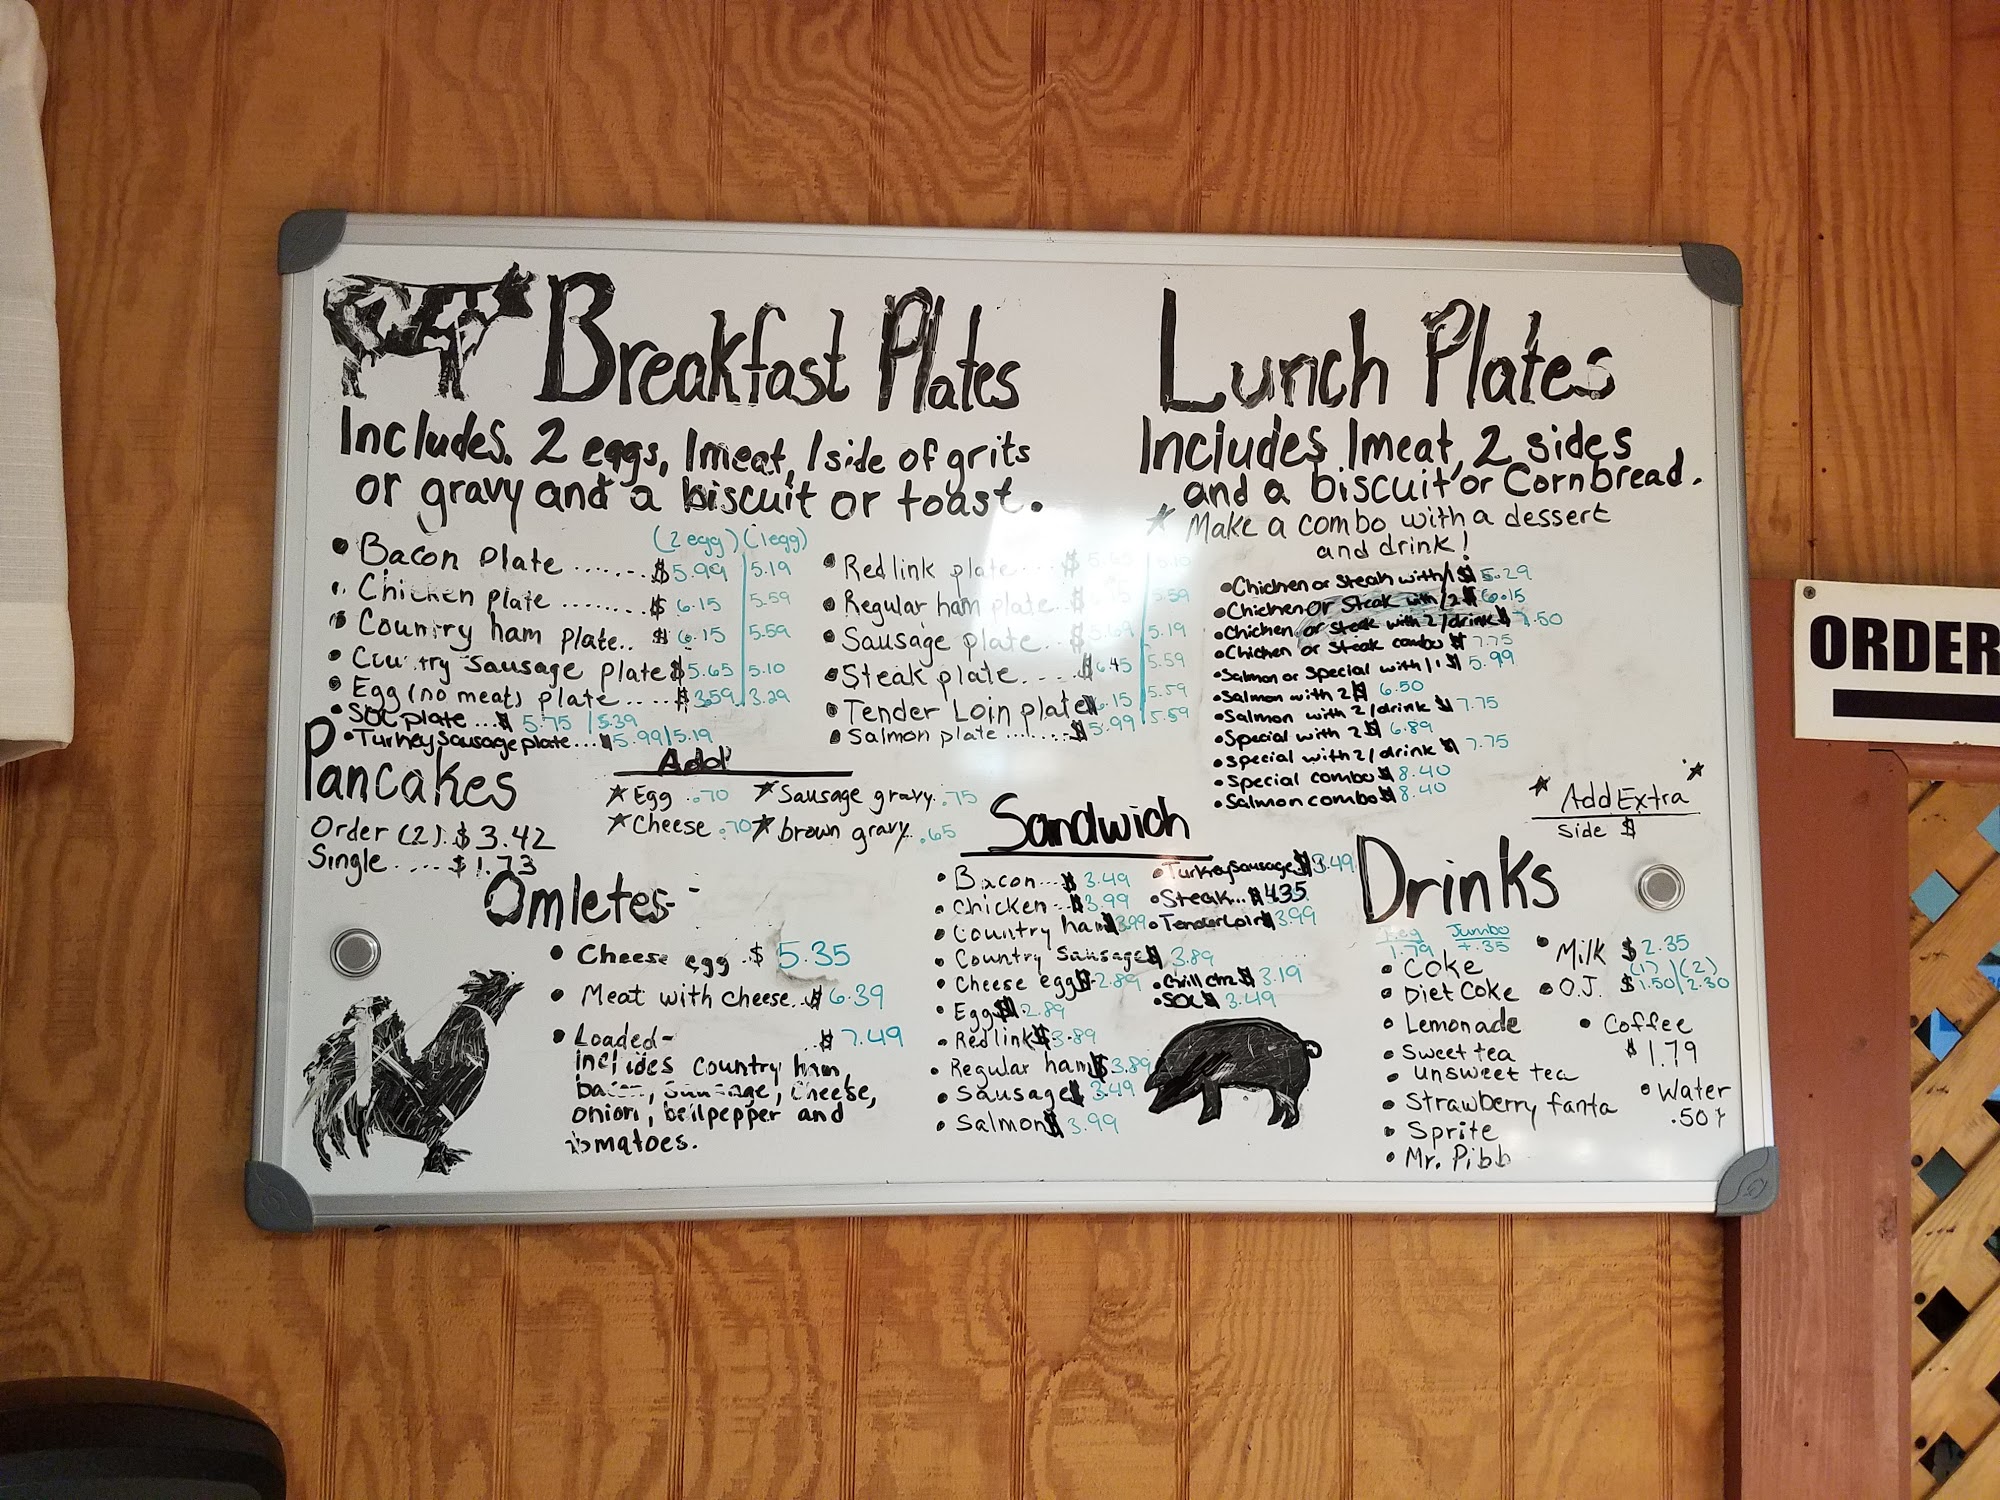 Breakfast Plates
Includes. 2 eggs, 1 meat, 1 side of grits
or gravy and a biscuit or toast.
(2 egg) (1 egg)
• Bacon plate ....... $5.99 | 5.19
• Chicken plate ........ $ 6.15 | 5.59
• Country ham plate.. $ 6.15 | 5.59
• Country sausage plate $5.65 | 5.10
• Egg (no meat) plate ..... $3.59 | 3.29
• SOC plate ... $ 5.75 | 5.39
• Turkey Sausage plate... $5.99 | 5.19
• Red link plate .... $
• Regular ham plate... $ 5.59
• Sausage plate .. $ 5.19
• Steak plate.... $6.45 | 5.59
• Tender Loin plate $6.15 | 5.59
• Salmon plate ....... $5.99 | 5.59
Pancakes
Order (2). $3.42
Single .... $1.73
Add
☆ Egg .70
☆ Cheese .70
☆ Sausage gravy .75
☆ brown gravy .65
Omletes-
• Cheese egg $ 5.35
• Meat with cheese.. $6.39
• Loaded- $7.49
includes country ham,
bacon, sausage, cheese,
onion, bellpepper and
tomatoes.
Sandwich
• Bacon... $ 3.49
• Chicken... $3.99
• Country ham $3.99
• Country Sausage $ 3.89
• Cheese egg $2.89
• Egg $2.89
• Red link $3.89
• Regular ham $3.89
• Sausage $ 3.49
• Salmon $ 3.99
• Turkey Sausage $3.49
• Steak... $4.35
• Tender Loin $3.99
• Grill chz $ 3.19
• SOC $ 3.49
Lunch Plates
Includes 1 meat, 2 sides
and a biscuit or Cornbread.
☆ Make a combo with a dessert
and drink!
• Chicken or Steak with/1 $ 5.29
• Chicken or Steak with/2 $ 6.15
• Chicken or Steak with 2/drink $ 7.50
• Chicken or Steak combo $ 7.75
• Salmon or Special with/1 $ 5.99
• Salmon with 2 $ 6.50
• Salmon with 2/drink $ 7.75
• Special with 2 $ 6.89
• Special with 2/drink $ 7.75
• Special combo $ 8.40
• Salmon combo $ 8.40
☆ Add Extra ☆
Side $
Drinks
Reg Jumbo
1.79 +.35
• Coke
• Diet Coke
• Lemonade
• Sweet tea
unsweet tea
• Strawberry fanta
• Sprite
• Mr. Pibb
• Milk $ 2.35
(1) (2)
• O.J. $1.50 | 2.30
• Coffee
$ 1.79
• Water
.50¢
ORDER